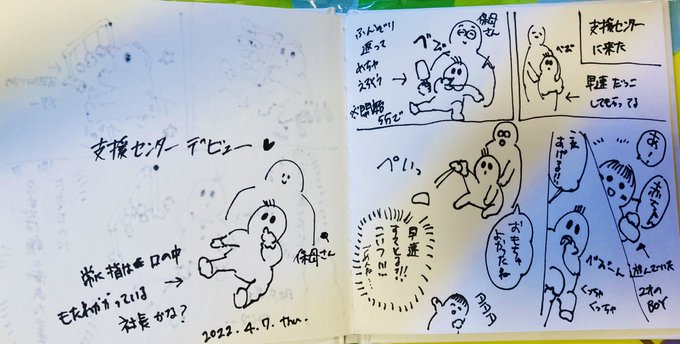 支援センターデビュー♥
保母さん
常に指は口の中
もたれかかっている
社長かな?
2022.4.7.thu.
支援センター
に来た
べお
早速だっこ
してもらってる
保母さん
べぶ
ふんぞり
返って
めちゃ
えらそう
開始
5分で
あ!
赤ちゃん
遊んでいた
2才のBOY
べおーん
くっちゃ
くっちゃ
おもちゃ
よかったね
ぺいっ
早速
すてとる!!
こいつ!!!